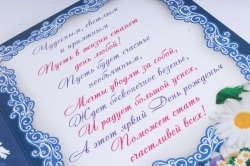 Чудесным, светлым
и приятным
Пусть в жизни станет
день любой!
Пусть будет счастье
необъятным,
Мечты уводят за собой,
Ждет бесконечное везенье,
И радует большой успех,
А этот яркий День рожденья
Поможет стать
счастливей всех!